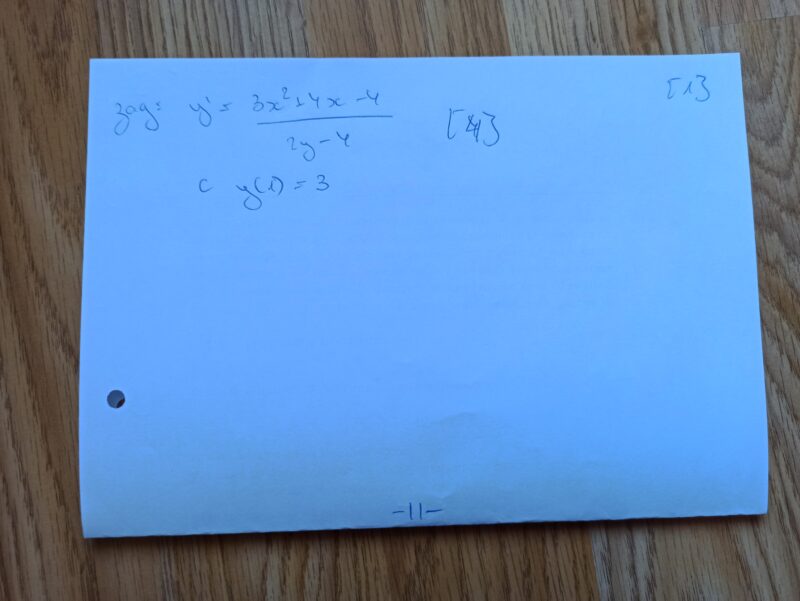 [1]
zag: y' = 3x²+4x-4 / 2y-4 [4]
c y(1) = 3
-11-